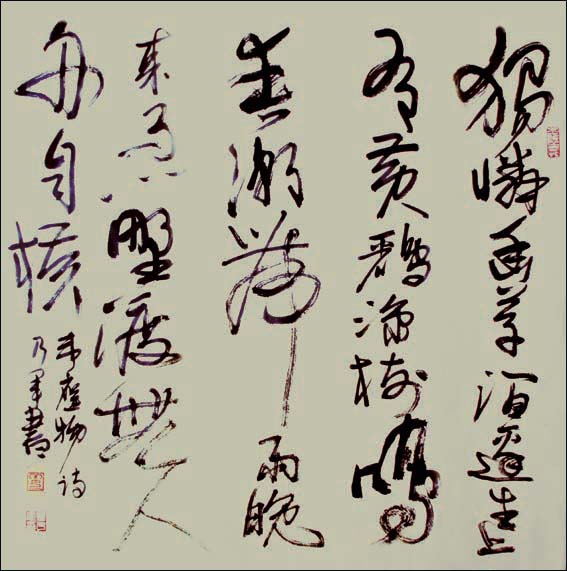 獨憐幽草澗邊生上
有黄鸝深树鳴
春潮帶雨晚
来急野渡無人
舟自横
韦應物诗
乃軍書